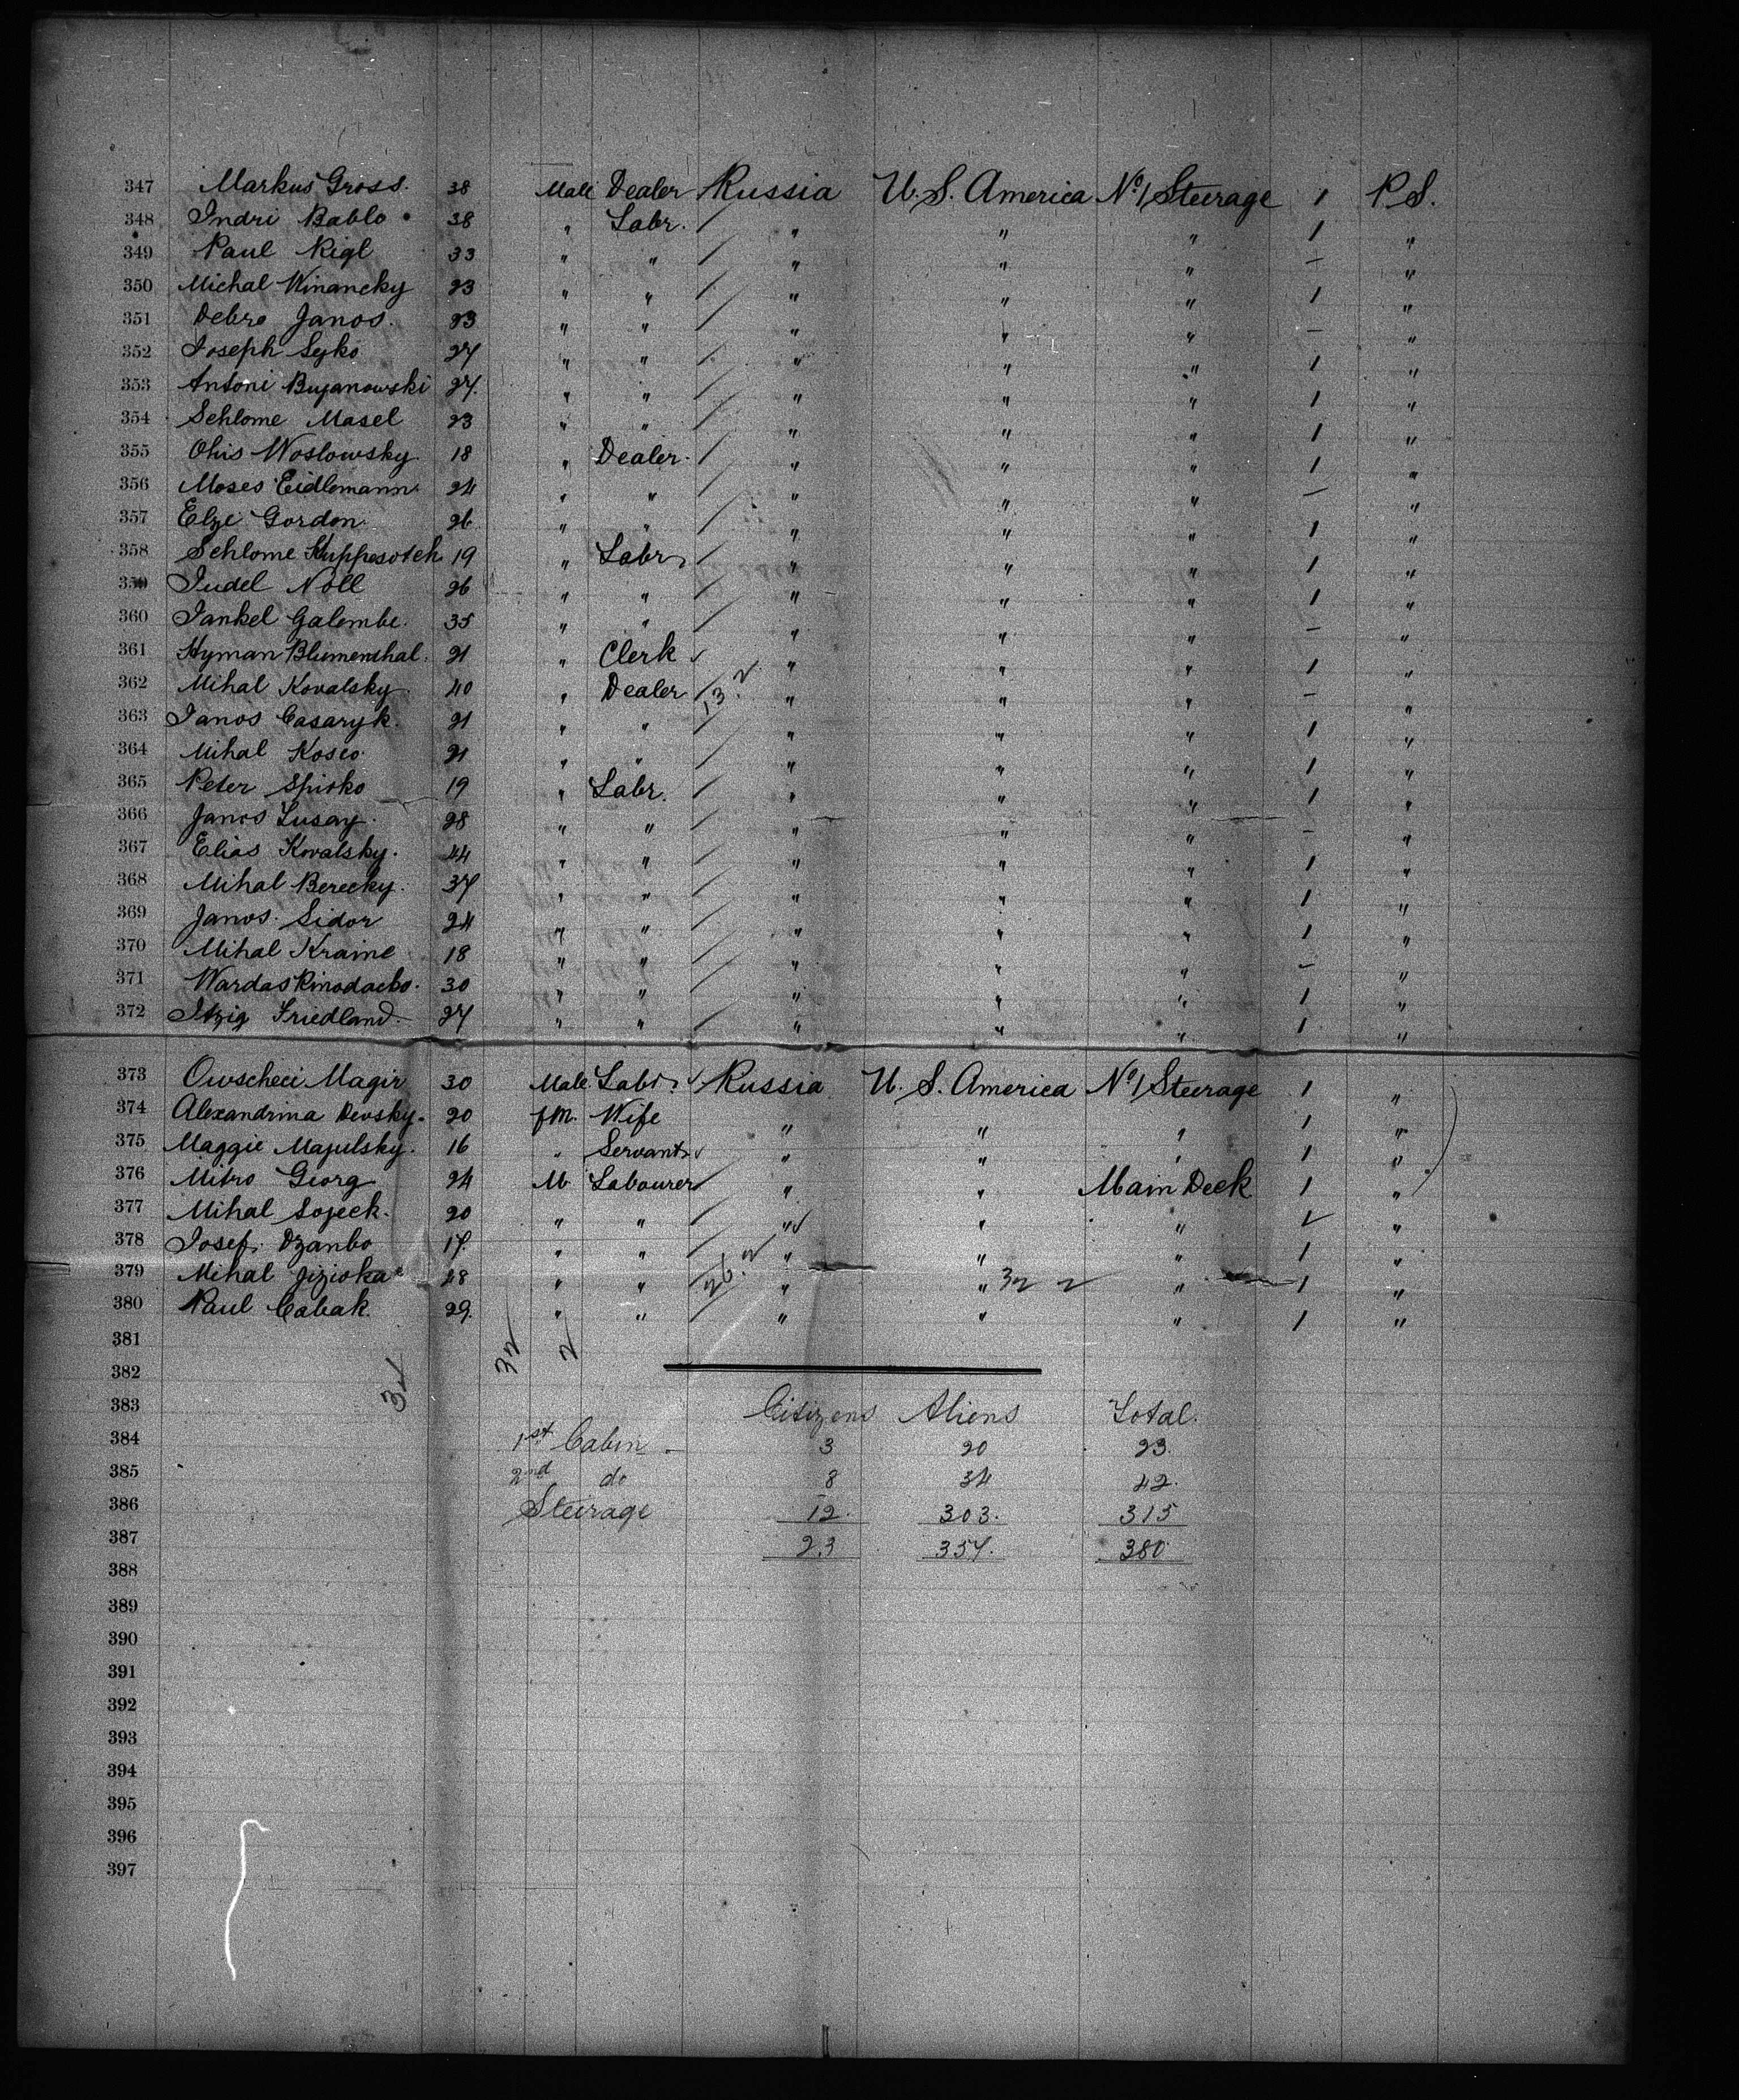 347 Markus Gross. 38 Male Dealer Russia U. S. America No 1 Steerage 1 P.S.
348 Indri Bablo 38 " Labr. / " " " 1 "
349 Paul Rigl 33 " " / " " " – "
350 Michal Winancky 23 " " / " " " 1 "
351 Debro Janos. 23 " " / " " " – "
352 Joseph Seyko 27 " " / " " " 1 "
353 Antoni Bujanowski 27. " " / " " " 1 "
354 Schlome Masel 23 " " / " " " 1 "
355 Ohis Woslowsky 18 " Dealer. / " " " 1 "
356 Moses Eidlemann 24 " " / " " " – "
357 Elze Gordon. 26 " " / " " " 1 "
358 Schlome Kuppesotch 19 " Labr / " " " 1 "
359 Judel Noll 26 " " / " " " 1 "
360 Jankel Galembe. 35 " " / " " " – "
361 Hyman Blumenthal. 21 " Clerk ✓ " " " 1 "
362 Mihal Kovalsky 40 " Dealer / 13.2 " " " – "
363 Janos Casaryk. 21 " " / " " " 1 "
364 Mihal Kosco 21 " " / " " " 1 "
365 Peter Spisko 19 " Labr. / " " " 1 "
366 Janos Lusay. 28 " " / " " " – "
367 Elias Kovalsky. 44 " " / " " " 1 "
368 Mihal Berecky. 37 " " / " " " 1 "
369 Janos. Sidor 24 " " / " " " 1 "
370 Mihal Kraine 18 " " / " " " – "
371 Wardas 30 " " / " " " 1 "
372 Itzig Friedland. 27 " " / " " " 1 "
373 Magir 30 Male Labr. ✓ Russia U. S. America No 1 Steerage 1 "
374 Alexandrina Devsky. 20 fM. Wife " " " 1 "
375 Maggie Majulsky. 16 " Servant ✓ " " " 1 "
376 Mitro Giorg 24 M Labourer / " " Main Deck 1 "
377 Mihal Sojeck. 20 " " / " ✓ " " 1 "
378 Josef. Dzanbo 17. " " / " " " 1 "
379 Mihal Jizioka 48 " " / 26.2 " " 32 2 " 1 "
380 Paul Cabak. 29. " " / " " " 1 "
381 32 2
382
383 32 Citizens Aliens Total.
384 1st Cabin 3 20 23.
385 2nd do 8 34 42.
386 Steerage 12. 303. 315
387 23 357. 380
388
389
390
391
392
393
394
395
396
397